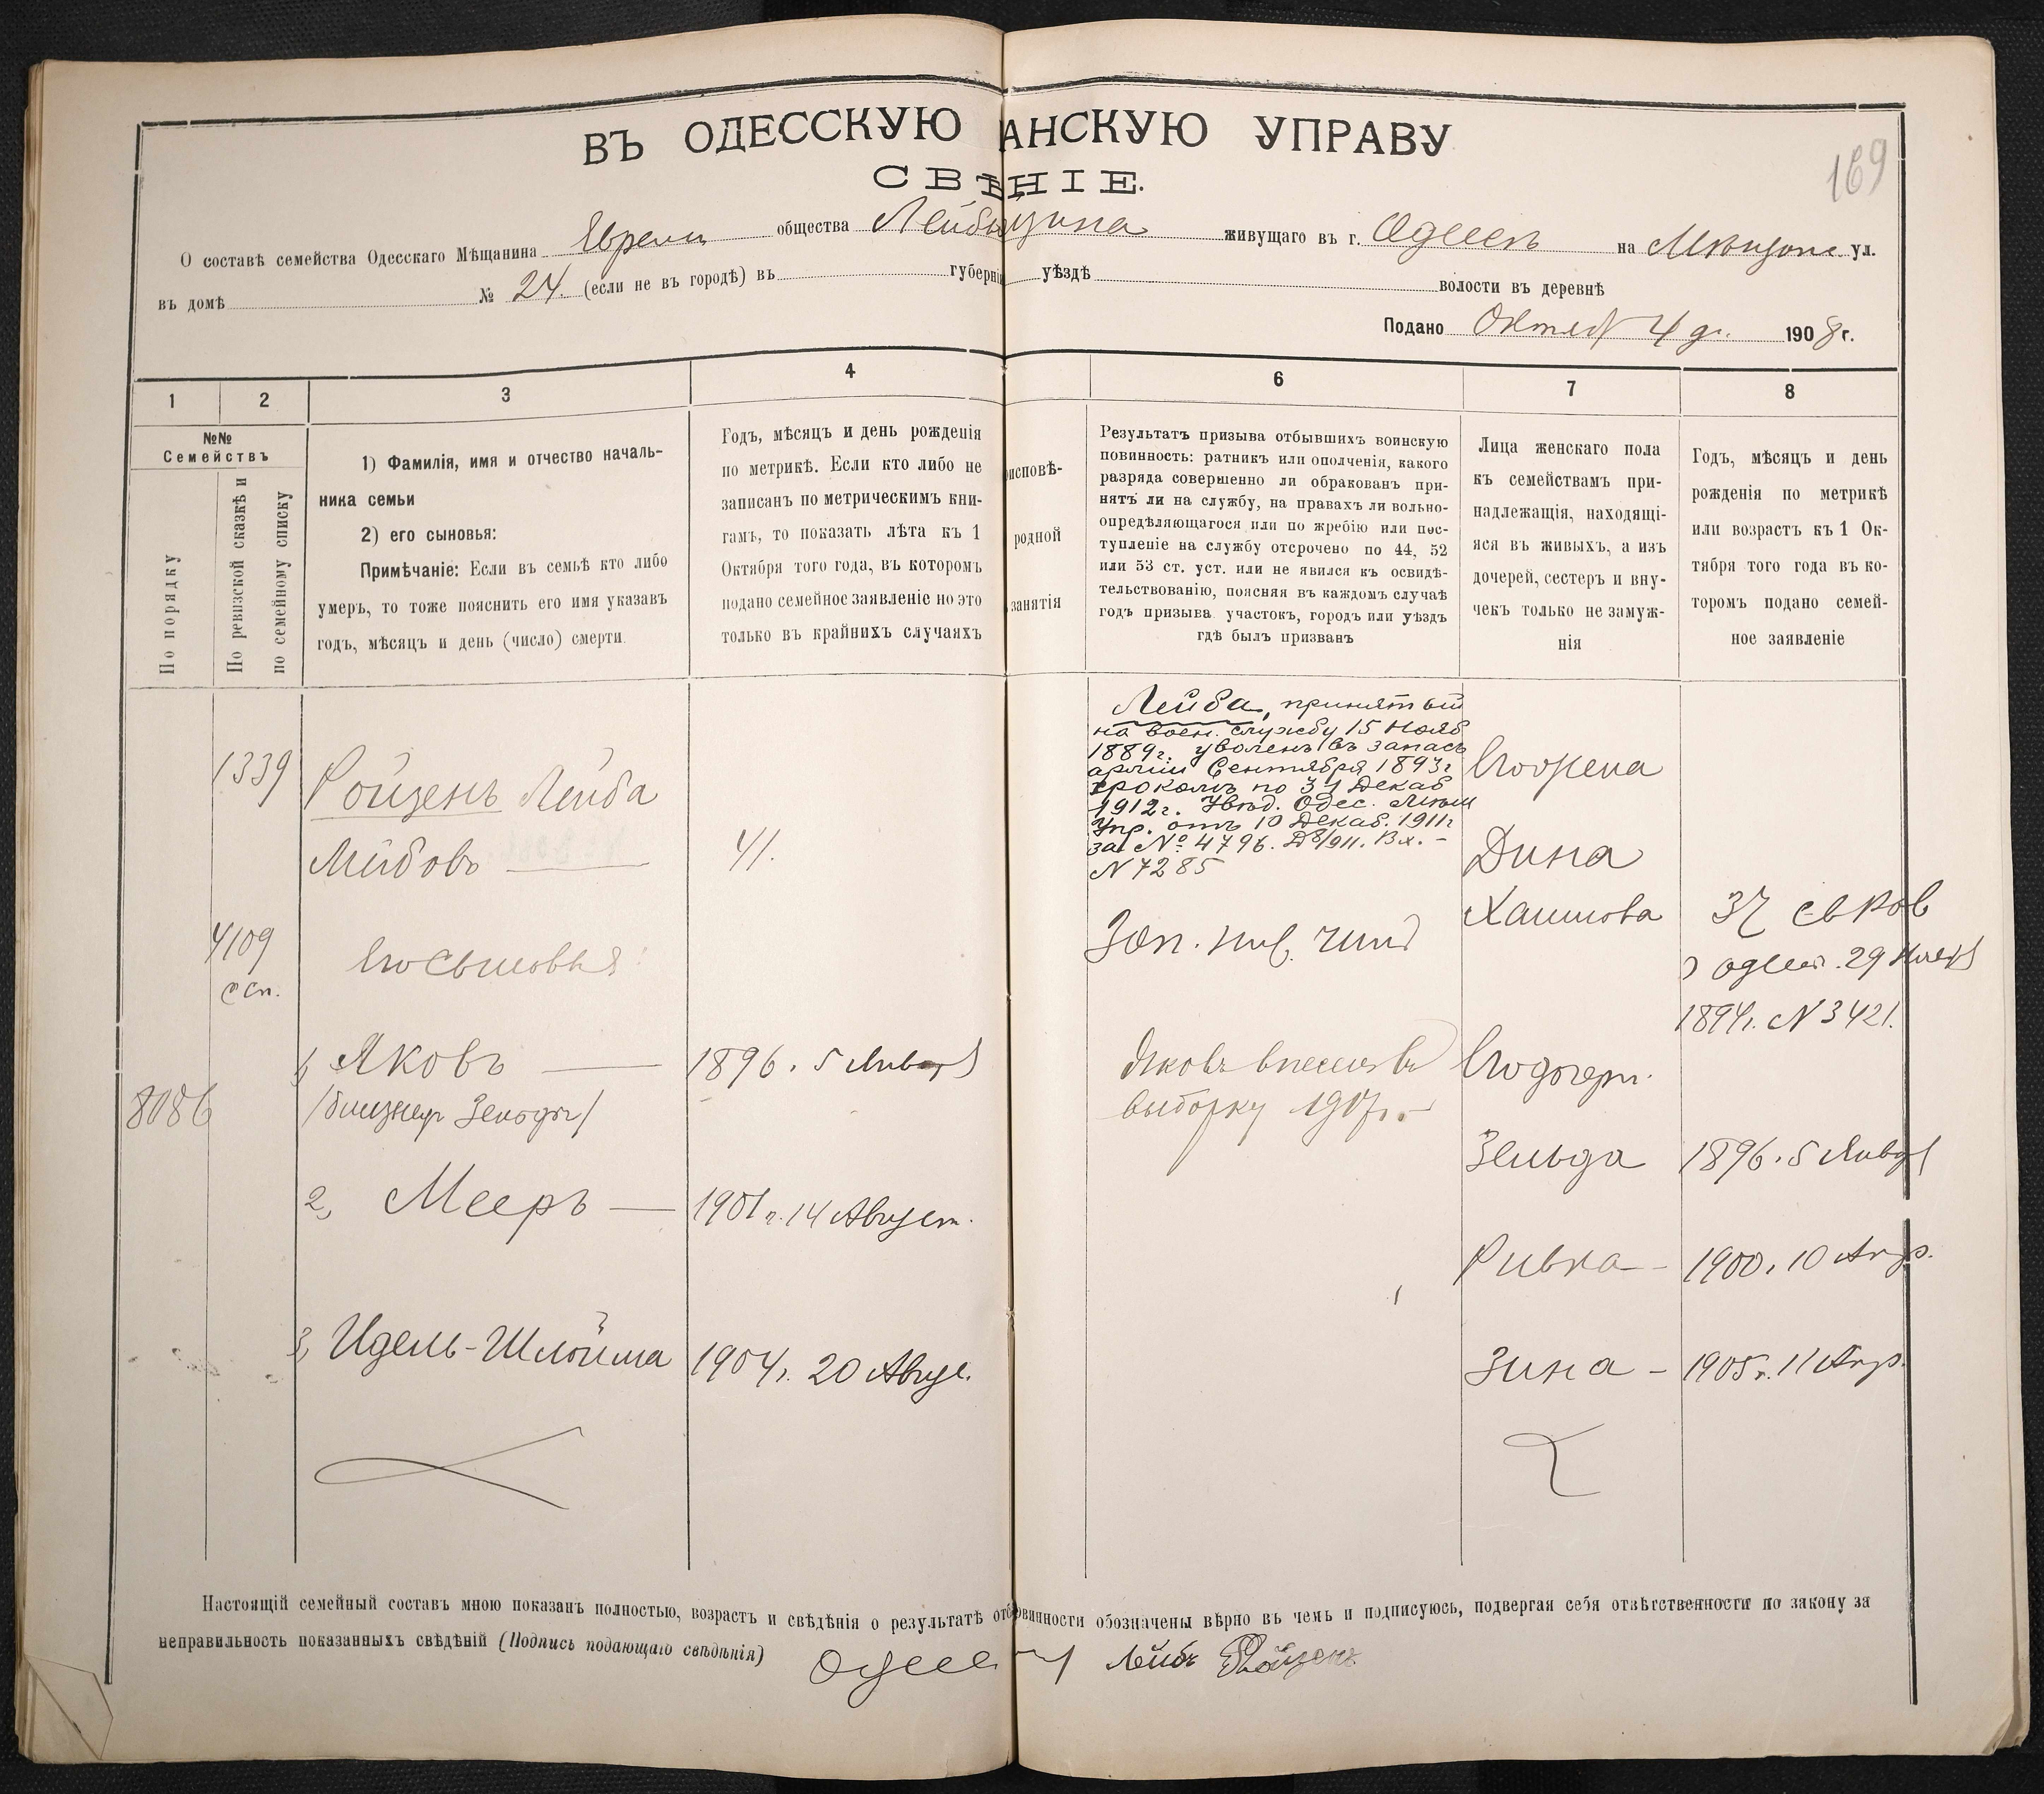 169
ВЪ ОДЕССКУЮ АНСКУЮ УПРАВУ
СВѢНІЕ.
О составѣ семейства Одесскаго Мѣщанина Евреи общества Лейбы живущаго въ г. Одессѣ на ул.
въ домѣ № 24. (если не въ городѣ) въ губерніи уѣздѣ волости въ деревнѣ
Подано Октяб 4 д. 1908 г.
1 2 3 4 6 7 8
№№
Семействъ
По порядку
По ревизской сказкѣ и
по семейному списку
1) Фамилія, имя и отчество началь-
ника семьи
2) его сыновья:
Примѣчаніе: Если въ семьѣ кто либо
умеръ, то тоже пояснить его имя указавъ
годъ, мѣсяцъ и день (число) смерти.
Годъ, мѣсяцъ и день рожденія
по метрикѣ. Если кто либо не
записанъ по метрическимъ кни-
гамъ, то показать лѣта къ 1
Октября того года, въ которомъ
подано семейное заявленіе но это
только въ крайнихъ случаяхъ
исповѣ-
родной
занятія
Результатъ призыва отбывшихъ воинскую
повинность: ратникъ или ополченія, какого
разряда совершенно ли обракованъ при-
нятъ ли на службу, на правахъ ли вольно-
опредѣляющагося или по жребію или пос-
тупленіе на службу отсрочено по 44, 52
или 53 ст. уст. или не явился къ освидѣ-
тельствованію, поясняя въ каждомъ случаѣ
годъ призыва участокъ, городъ или уѣздъ
гдѣ былъ призванъ
Лица женскаго пола
къ семействамъ при-
надлежащія, находящі-
яся въ живыхъ, а изъ
дочерей, сестеръ и вну-
чекъ только не замуж-
нія
Годъ, мѣсяцъ и день
рожденія по метрикѣ
или возрастъ къ 1 Ок-
тября того года въ ко-
торомъ подано семей-
ное заявленіе
1339
Ройзенъ Лейба
Лейбовъ
41.
Лейба, принятый
на воен. службу 15 Нояб
1889г. уволенъ въ запасъ
арміи Сентября 1893г
срокомъ по 31 Декаб
1912г. Увѣд. Одес. Мѣщ
Упр. отъ 10 Декаб. 1911г
за № 4796. Д8/911. Вх. -
N 7285
Зап. ниж. чинъ
Его жена
Дина
Хаимова
37
одесс. 29 Нояб
1894г. N 3421.
4109
с сп.
Его сыновья:
1, Яковъ
1896. 5 Январ
/близнец Зельды/
8086
Яковъ внесенъ въ
выборку 1917г.
Его дочери.
Зельда
1896. 5 Январ
2, Мееръ
1901 г. 14 Август.
Ривка
1900. 10 Апр.
3, Идель-Шлойма
1904г. 20 Авгус.
Зина
1905г. 11 Апр.
Настоящій семейный составъ мною показанъ полностью, возрастъ и свѣдѣнія о результатѣ отб овинности обозначены вѣрно въ чемъ и подписуюсь, подвергая себя отвѣтственности по закону за
неправильность показанныхъ свѣдѣній (Подпись подающаго свѣдѣнія) Лейбъ Ройзенъ